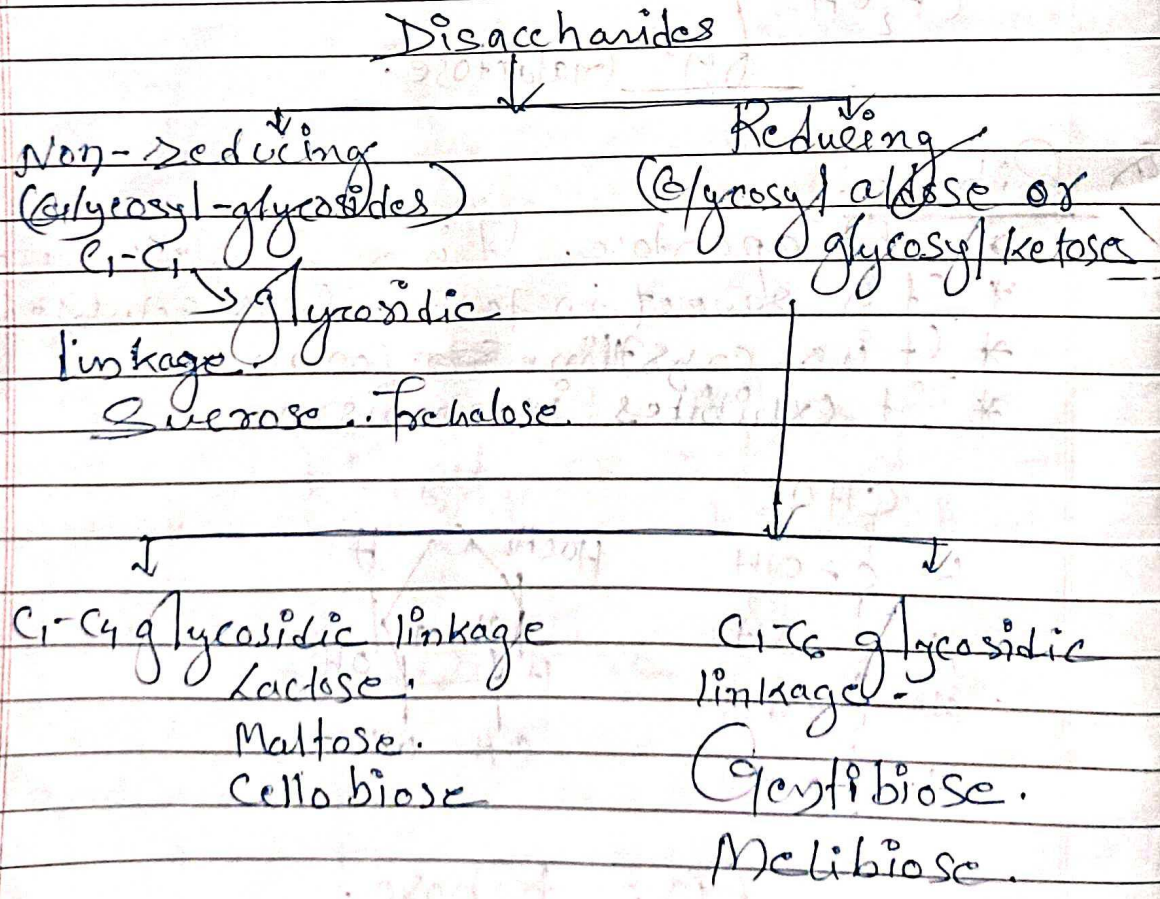 Disaccharides
Non-reducing
(Glycosyl-glycosides)
C1-C1
glycosidic
linkage.
Sucrose. Trehalose.
Reducing
(Glycosyl aldose or
glycosyl ketose)
C1-C4 glycosidic linkage
Lactose.
Maltose.
Cellobiose
C1-C6 glycosidic
linkage-
Gentibiose.
Melibiose.